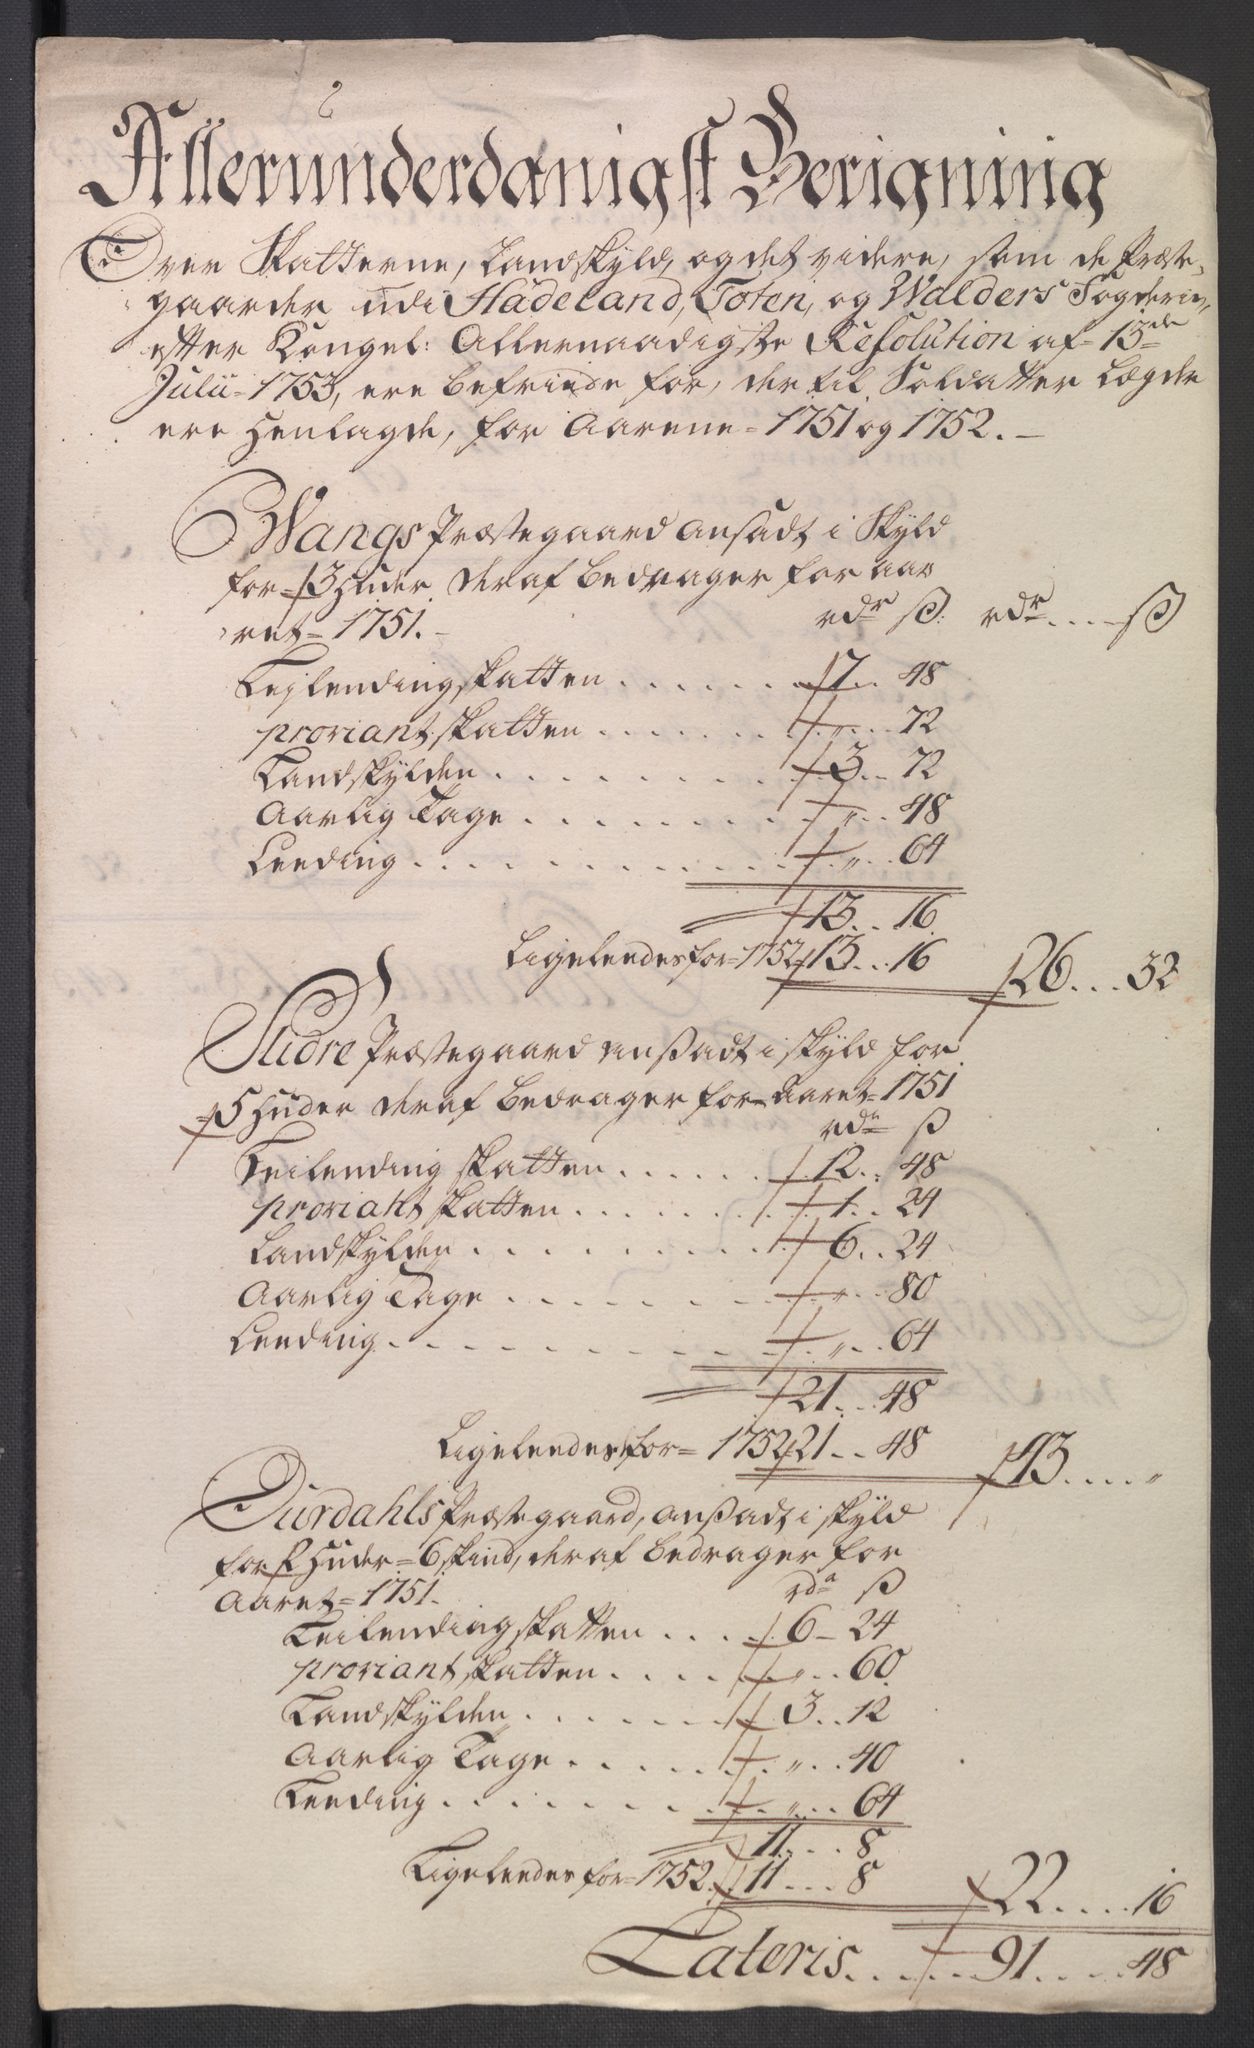 Allerunderdanigst Berigning
Over Skatterne, Landskyld, og det videre, som de Præste-
gaarder udi Hadeland, Toten, og Walders Fogderie,
efter Kongel: Allernaadigste Resolution af 13de
Julii 1753, ere befriede for, der til Soldatter Lægder
ere Henlagde, for Aarene 1751 og 1752.
Wangs Præstegaard ansadt i Skyld
for 3 Huder, deraf bedrager for aa-
ret 1751. rdr ß: rdr ß
Leylendingskatten 7 48
proviantskatten " 72
Landskylden 3 72
Aarlig Tage " 48
Leeding " 64
13 16
Ligeleedes for 1752 13 16 26 32
Slidre Præstegaard anßadt i skyld for
5 Huder deraf bedrager for Aaret 1751
rdr ß
Leilending skatten 12 48
proviant skatten 1 24
Landskylden 6 24
Aarlig Tage " 80
Leeding " 64
21 48
Ligeleedes for 1752 21 48 43 "
Ourdahls Præstegaard, anßadt i skyld
for 2 Huder 6 skind, deraf bedrager for
Aaret 1751. rdr ß
Leilending skatten 6 24
proviant skatten " 60
Landskylden 3 12
Aarlig Tage " 40
Leeding " 64
11 8
Ligeleedes for 1752 11 8 22 16
Lateris 91 48